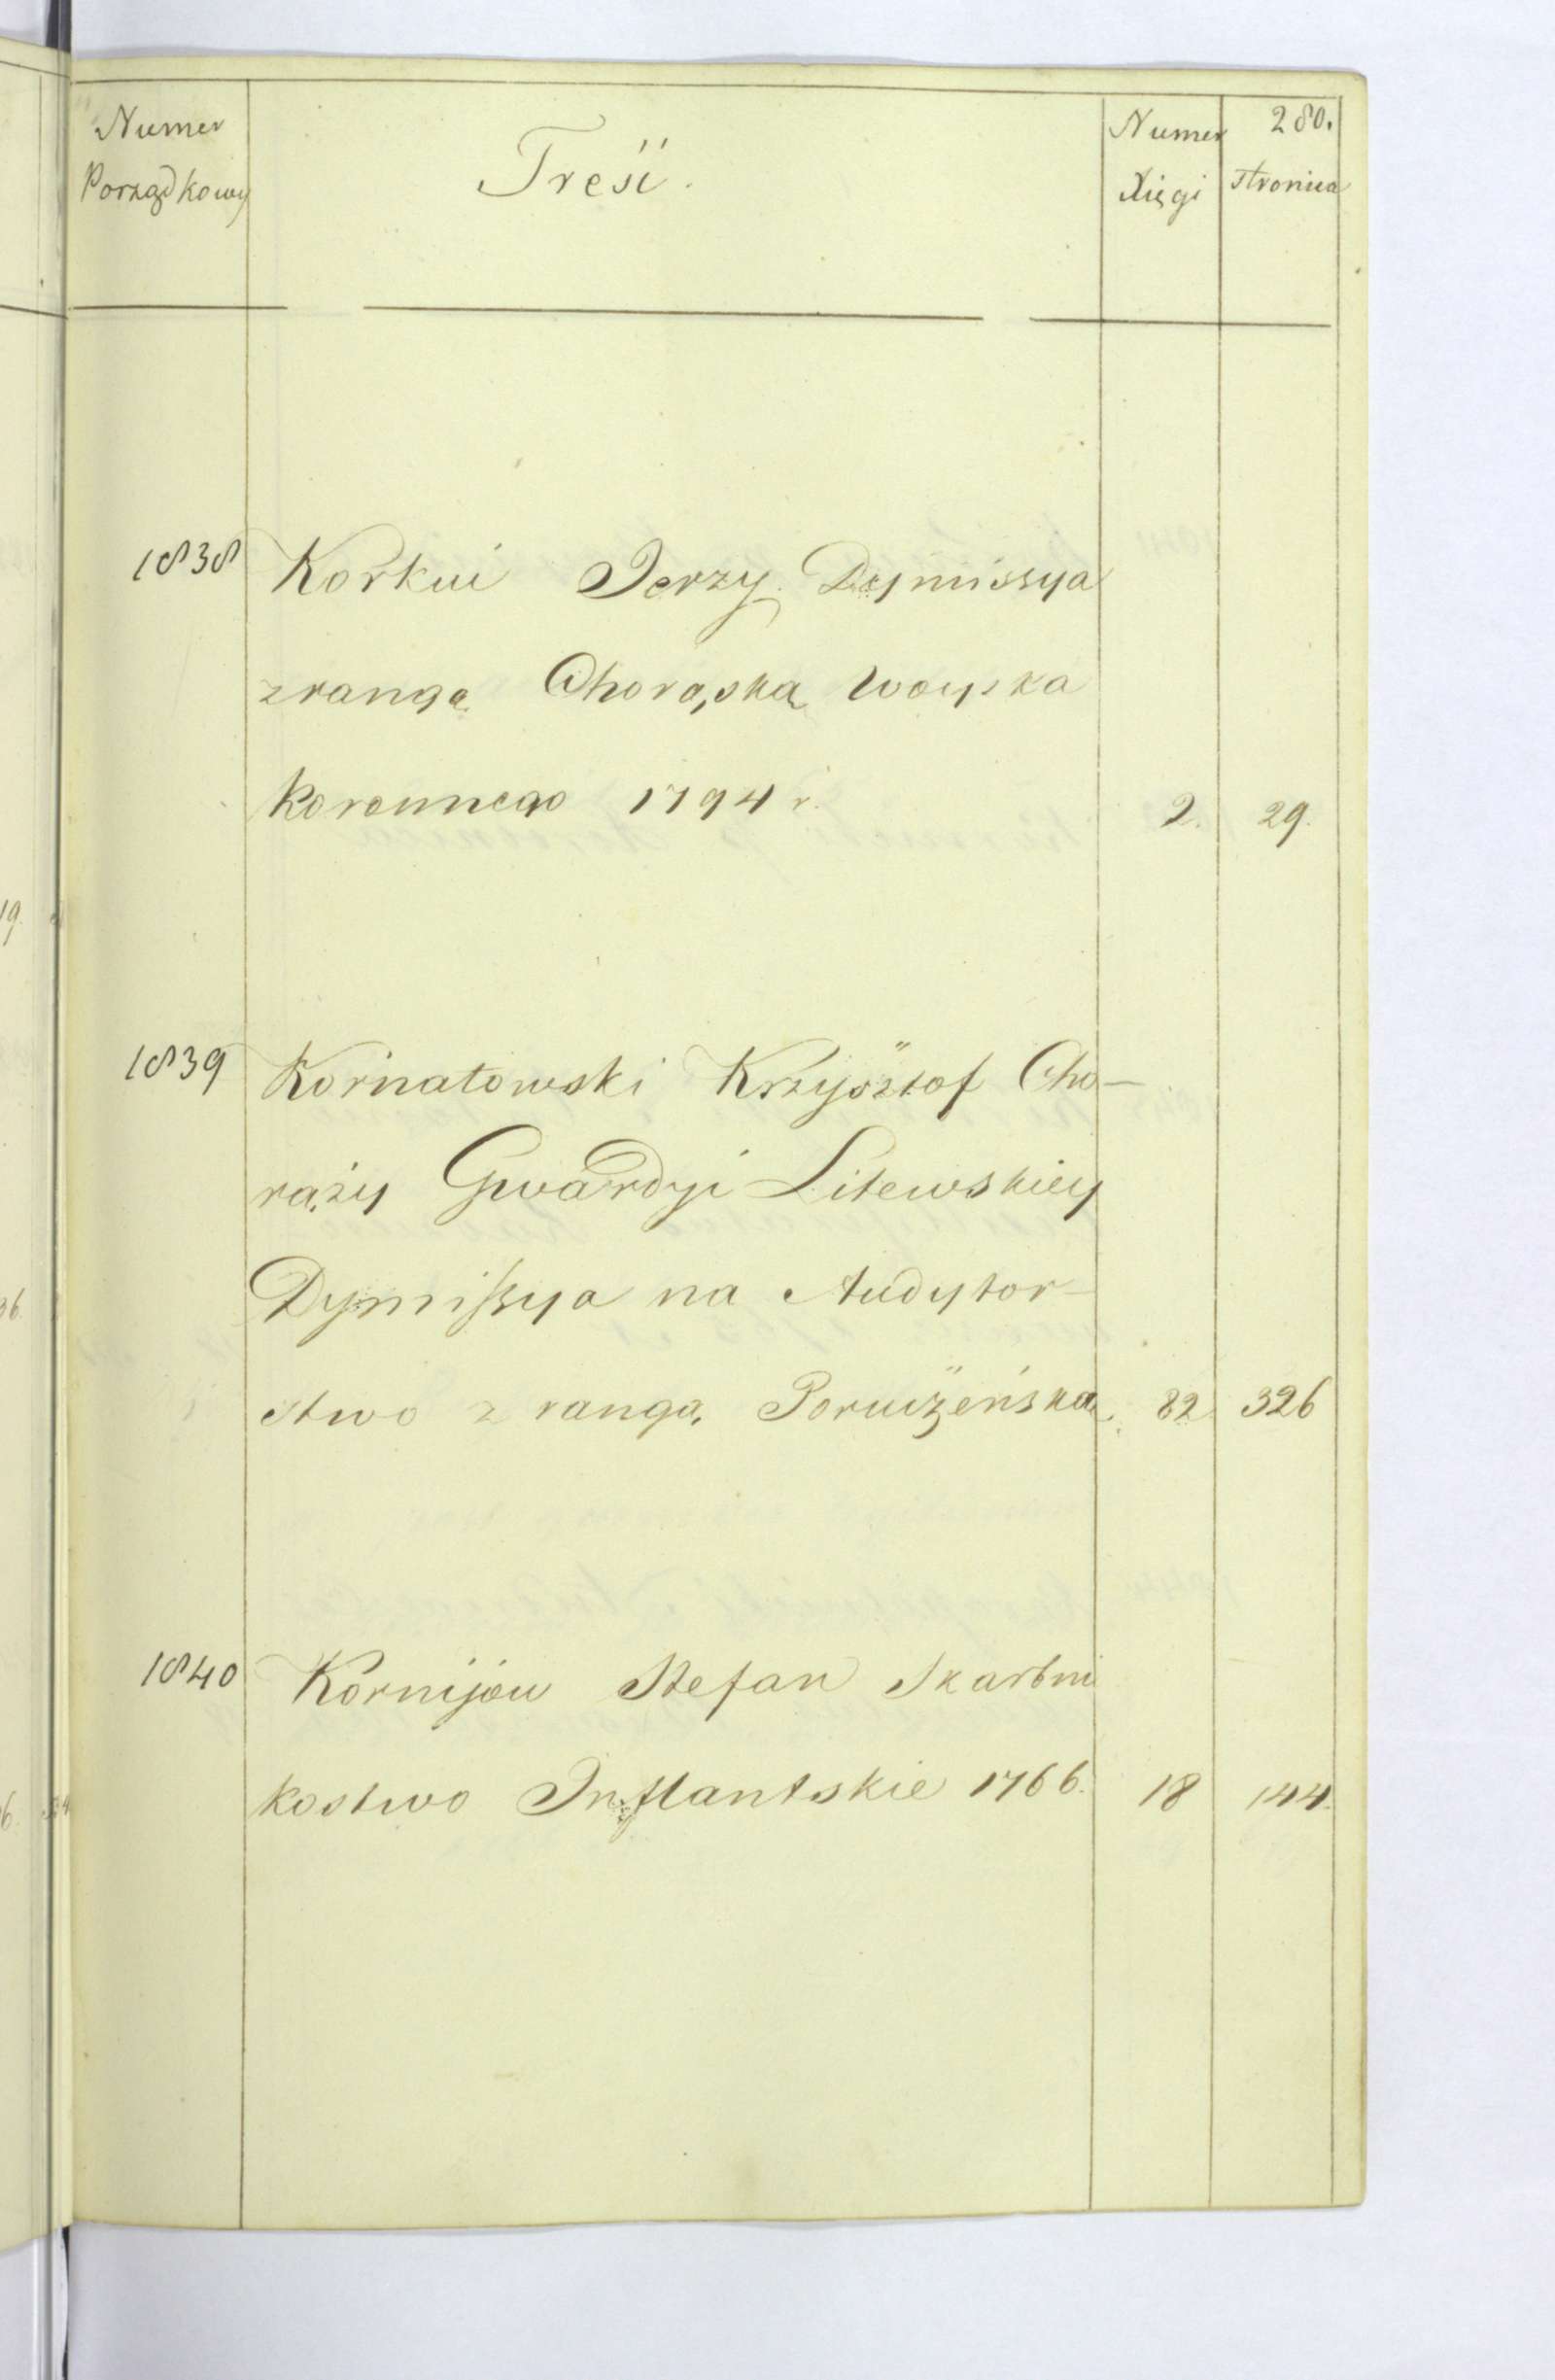 280.
Numer Treść. Numer Stronica
Porządkowy Xięgi
1838 Korkuć Jerzy Dymissya
z rangą Chorąską woyska
Koronnego 1794 r. 2. 29.
1839 Kornatowski Krzysztof Cho-
rąży Gwardyi Litewskiey
Dymissya na Audytor-
stwo z rangą Poruczeńską. 82. 326
1840 Kornijów Stefan Skarbni
kostwo Inflantskie 1766. 18 144.